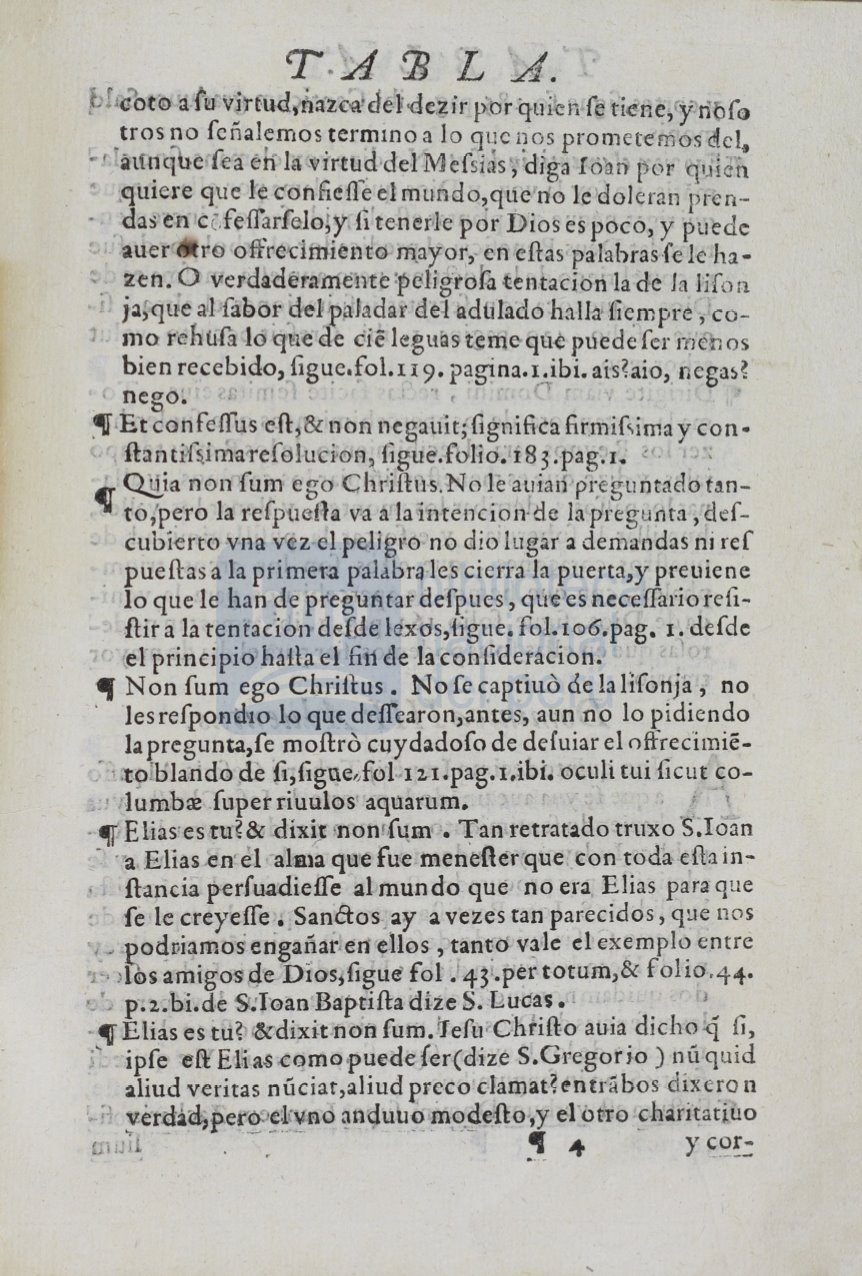 TABLA.
coto a ſu virtud, nazca del dezir por quien ſe tiene, y noſo
tros no ſeñalemos termino a lo que nos prometemos del,
aunque ſea en la virtud del Meſsias, diga Ioan por quien
quiere que le confieſſe el mundo, que no le doleran pren-
das en cõfeſſarſelo, y ſi tenerle por Dios es poco, y puede
auer otro offrecimiento mayor, en eſtas palabras ſe le ha-
zen. O verdaderamente peligroſa tentacion la de la liſon
ja, que al ſabor del paladar del adulado halla ſiempre, co-
mo rehuſa lo que de ciẽ leguas teme que puede ſer menos
bien recebido, ſigue.fol.119. pagina.1.ibi. ais? aio, negas?
nego.
¶ Et confeſſus eſt, & non negauit; ſignifica firmiſsima y con-
ſtantiſsima reſolucion, ſigue.folio.183.pag.1.
¶ Quia non ſum ego Chriſtus. No le auian preguntado tan-
to, pero la reſpueſta va a la intencion de la pregunta, deſ-
cubierto vna vez el peligro no dio lugar a demandas ni reſ
pueſtas a la primera palabra les cierra la puerta, y preuiene
lo que le han de preguntar deſpues, que es neceſſario reſi-
ſtir a la tentacion deſde lexos, ſigue. fol.106.pag. 1. deſde
el principio haſta el fin de la conſideracion.
¶ Non ſum ego Chriſtus. No ſe captiuò de la liſonja, no
les reſpondio lo que deſſearon, antes, aun no lo pidiendo
la pregunta, ſe moſtrò cuydadoſo de deſuiar el offrecimiẽ-
to blando de ſi, ſigue, fol 121.pag.1.ibi. oculi tui ſicut co-
lumbæ ſuper riuulos aquarum.
¶ Elias es tu? & dixit non ſum. Tan retratado truxo S. Ioan
a Elias en el alma que fue meneſter que con toda eſta in-
ſtancia perſuadieſſe al mundo que no era Elias para que
ſe le creyeſſe. Sanctos ay a vezes tan parecidos, que nos
podriamos engañar en ellos, tanto vale el exemplo entre
los amigos de Dios, ſigue fol. 43.per totum, & folio.44.
p.2.bi.de S. Ioan Baptiſta dize S. Lucas.
¶ Elias es tu? & dixit non ſum. Ieſu Chriſto auia dicho q̃ ſi,
ipſe eſt Elias como puede ſer (dize S. Gregorio) nũ quid
aliud veritas nũciat, aliud preco clamat? entrãbos dixeron
verdad, pero el vno anduuo modeſto, y el otro charitatiuo
¶ 4 y cor-